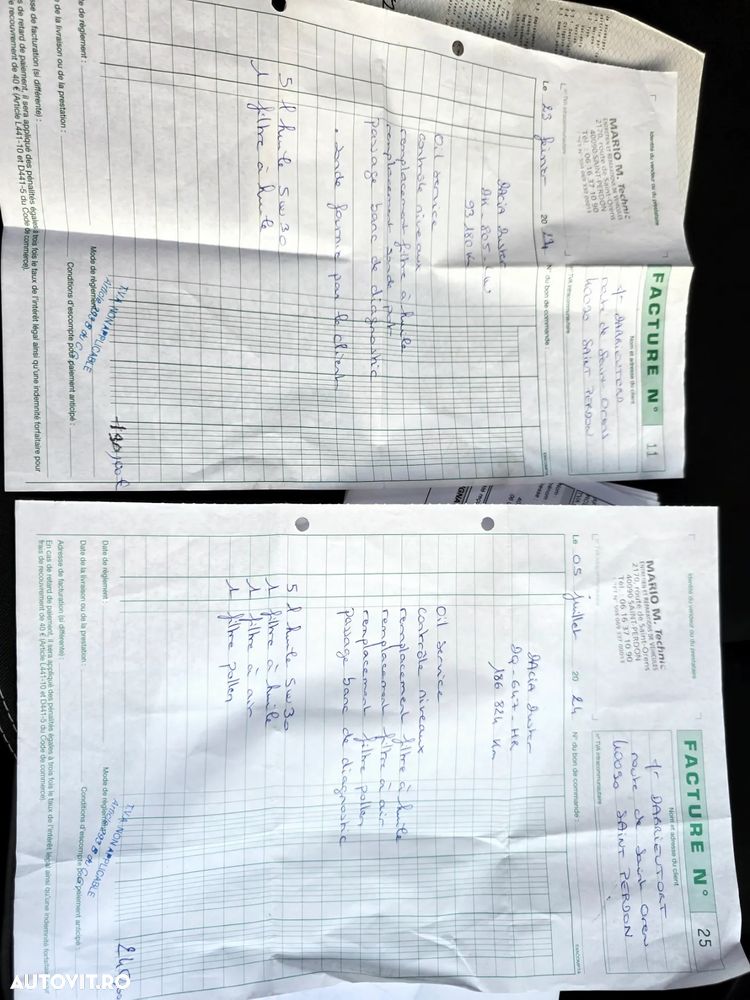 FACTURE N° 11
Identité du vendeur ou du prestataire
Nom et adresse du client
MARIO M. Technic
ENTRETIEN ET REPARATIONS DE VEHICULES
2170, route de Saint-Orens
40090 SAINT-PERDON
Tél : 06 16 37 10 90
route de Saint Orens
40090 SAINT PERDON
N° TVA intracommunautaire
N° TVA intracommunautaire
Le 23 février 20 24
N° du bon de commande :
DACIA Duster
93 180 Km
Oil service
contrôle niveaux
remplacement filtre à huile
remplacement sonde
passage banc de diagnostic
. sonde fournie par le client
5 l huile 5w30
1 filtre à huile
190,00€
Date de règlement :
Mode de règlement :
TVA NON APPLICABLE
Date de la livraison ou de la prestation :
Conditions d'escompte pour paiement anticipé :
Adresse de facturation (si différente) :
de retard de paiement, il sera appliqué des pénalités égales à trois fois le taux de l'intérêt légal ainsi qu'une indemnité forfaitaire pour
de recouvrement de 40 € (Article L441-10 et D441-5 du Code de commerce).
FACTURE N° 25
Identité du vendeur ou du prestataire
Nom et adresse du client
MARIO M. Technic
ENTRETIEN ET REPARATIONS DE VEHICULES
2170, route de Saint-Orens
40090 SAINT-PERDON
Tél : 06 16 37 10 90
route de Saint Orens
40090 SAINT PERDON
N° TVA intracommunautaire
N° TVA intracommunautaire
Le 05 juillet 20 24
N° du bon de commande :
DACIA Duster
DQ-647-HR
186 824 Km
Oil service
contrôle niveaux
remplacement filtre à huile
remplacement filtre à air
remplacement filtre pollen
passage banc de diagnostic
5 l huile 5w30
1 filtre à huile
1 filtre à air
1 filtre pollen
Date de règlement :
Mode de règlement :
TVA NON APPLICABLE
Date de la livraison ou de la prestation :
Conditions d'escompte pour paiement anticipé :
Adresse de facturation (si différente) :
En cas de retard de paiement, il sera appliqué des pénalités égales à trois fois le taux de l'intérêt légal ainsi qu'une indemnité forfaitaire pour
frais de recouvrement de 40 € (Article L441-10 et D441-5 du Code de commerce).
AUTOVIT.RO